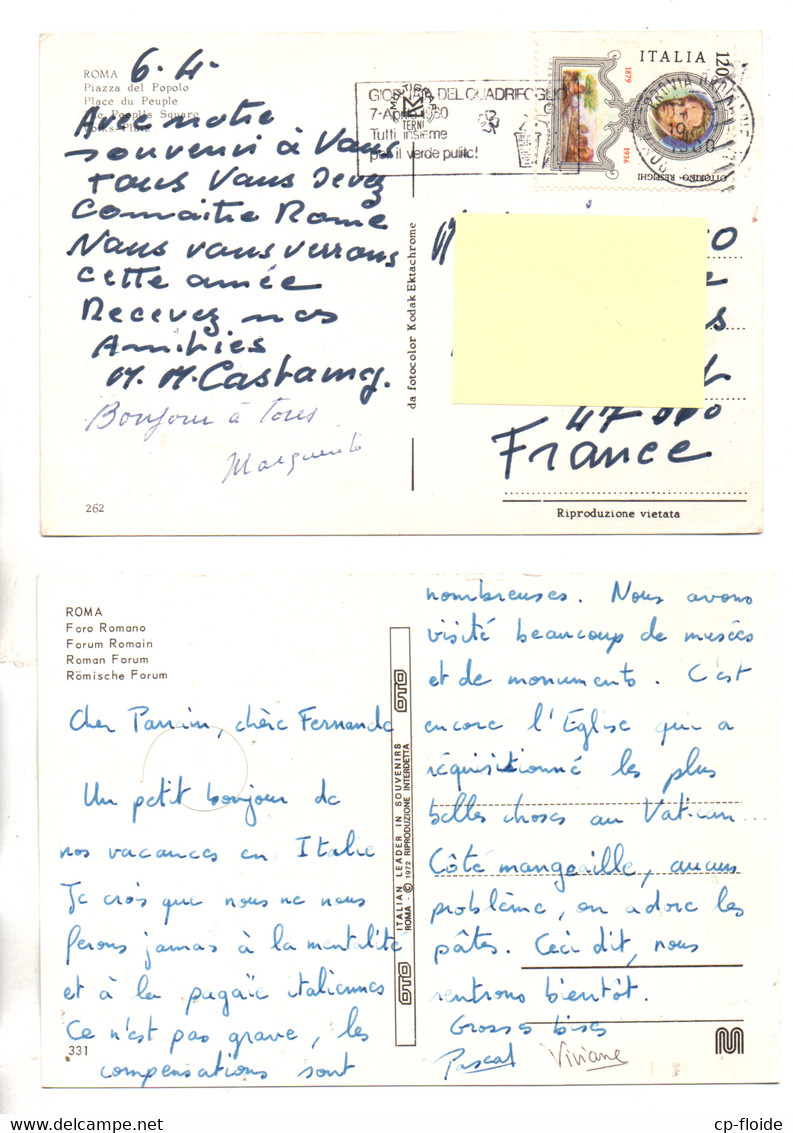 ROMA
Piazza del Popolo
Place du Peuple
The People's Square
Volks Platz
6.4.
Avec notre
souvenir à Vous
tous Vous devez
Connaitre Rome
Nous vous verrons
cette année
Recevez nos
Amitiés
M. M. Castaing.
Bonjour à tous
Marguerite
262
da fotocolor Kodak Ektachrome
GIORNATA DEL QUADRIFOGLIO
7-Aprile 1980
Tutti insieme
per il verde pulito!
TERNI
ITALIA
120
1879
1936
OTTORINO RESPIGHI
1980
47000
France
Riproduzione vietata
ROMA
Foro Romano
Forum Romain
Roman Forum
Römische Forum
Cher Parrain, chère Fernande
Un petit bonjour de
nos vacances en Italie
Je crois que nous ne nous
ferons jamais à la mentalité
et à la pagaïe italiennes
Ce n'est pas grave, les
compensations sont
331
OTO
ITALIAN LEADER IN SOUVENIRS
ROMA - © 1972 RIPRODUZIONE INTERDETTA
OTO
nombreuses. Nous avons
visité beaucoup de musées
et de monuments. C'est
encore l'Eglise qui a
réquisitionné les plus
belles choses au Vatican...
Côté mangeaille, aucun
problème, on adore les
pâtes. Ceci dit, nous
rentrons bientôt.
Grosses bises
Pascal Viviane
cp-floide